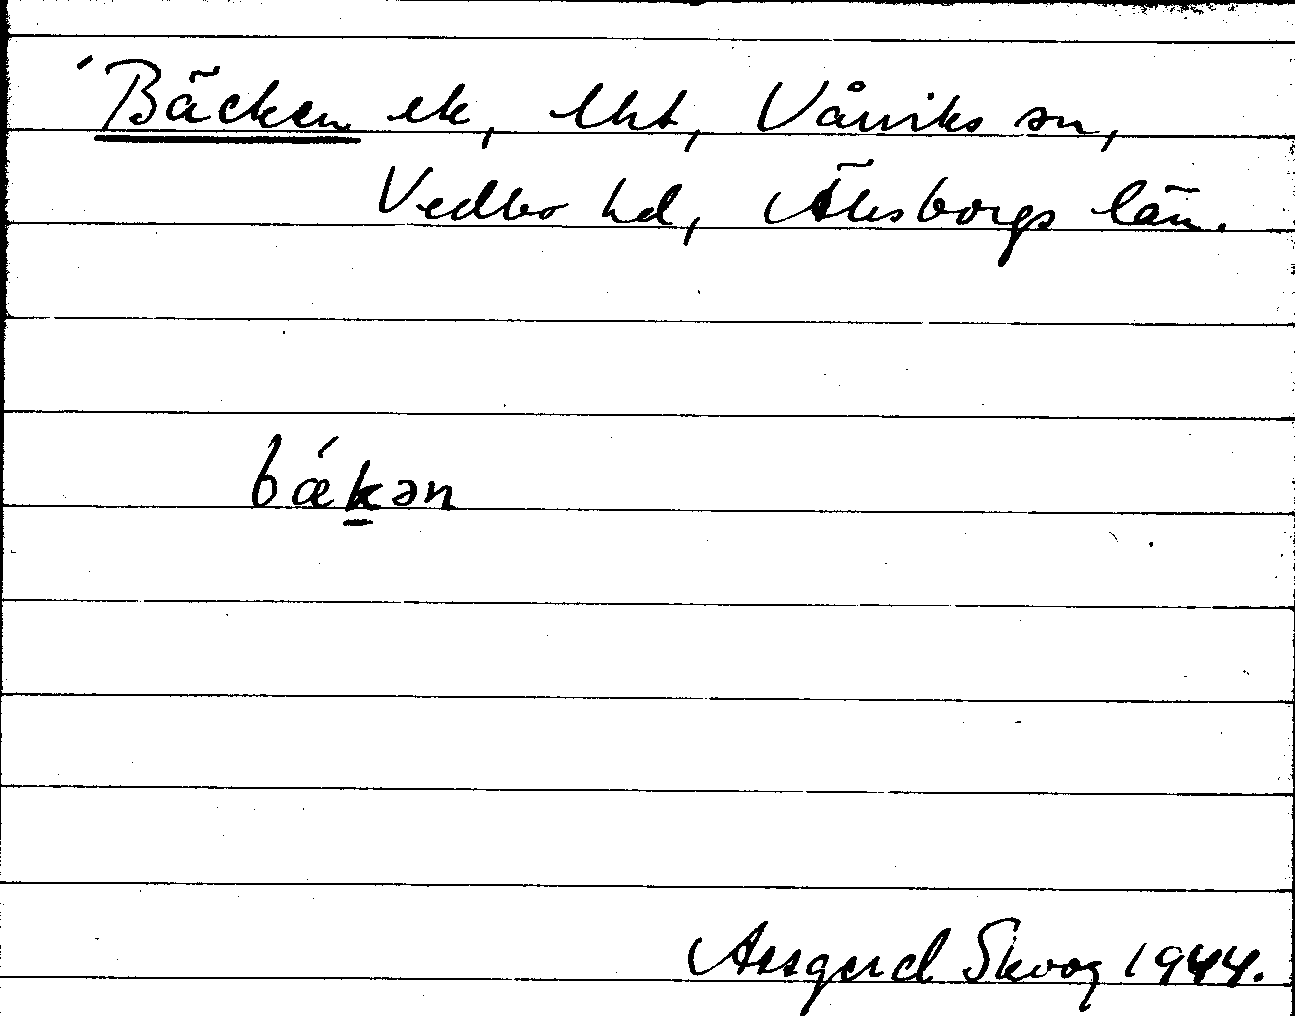 ´Bäcken ek, lht, Vårviks sn,
Vedbo hd, Älvsborgs län.
bǽk̲ən
Assgerd Skoog 1944.